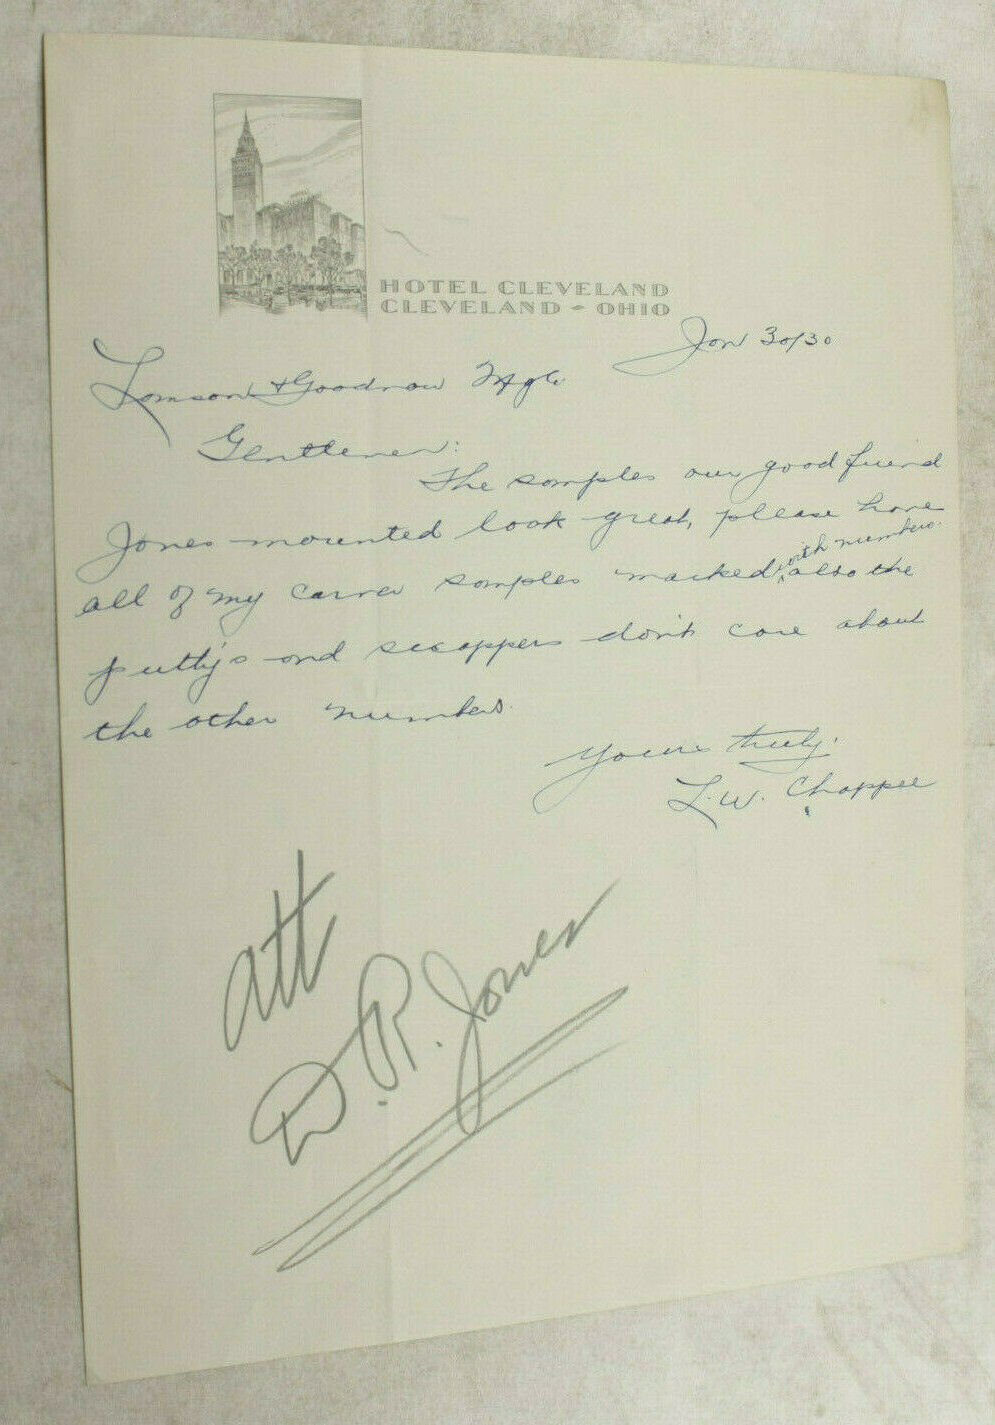 HOTEL CLEVELAND
CLEVELAND - OHIO
Jan 30/30
Lamson & Goodnow Mfg Co
Gentlemen:
The samples our good friend
Jones mounted look great, please have
all of my carver samples marked with numbers. also the
putty's and scrappers don't care about
the other numbers.
Yours truly.
L. W. Chappee
Att
D. R. Jones